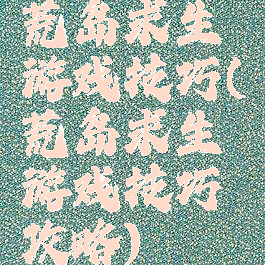 荒岛求生
游戏技巧(
荒岛求生
游戏技巧
攻略)